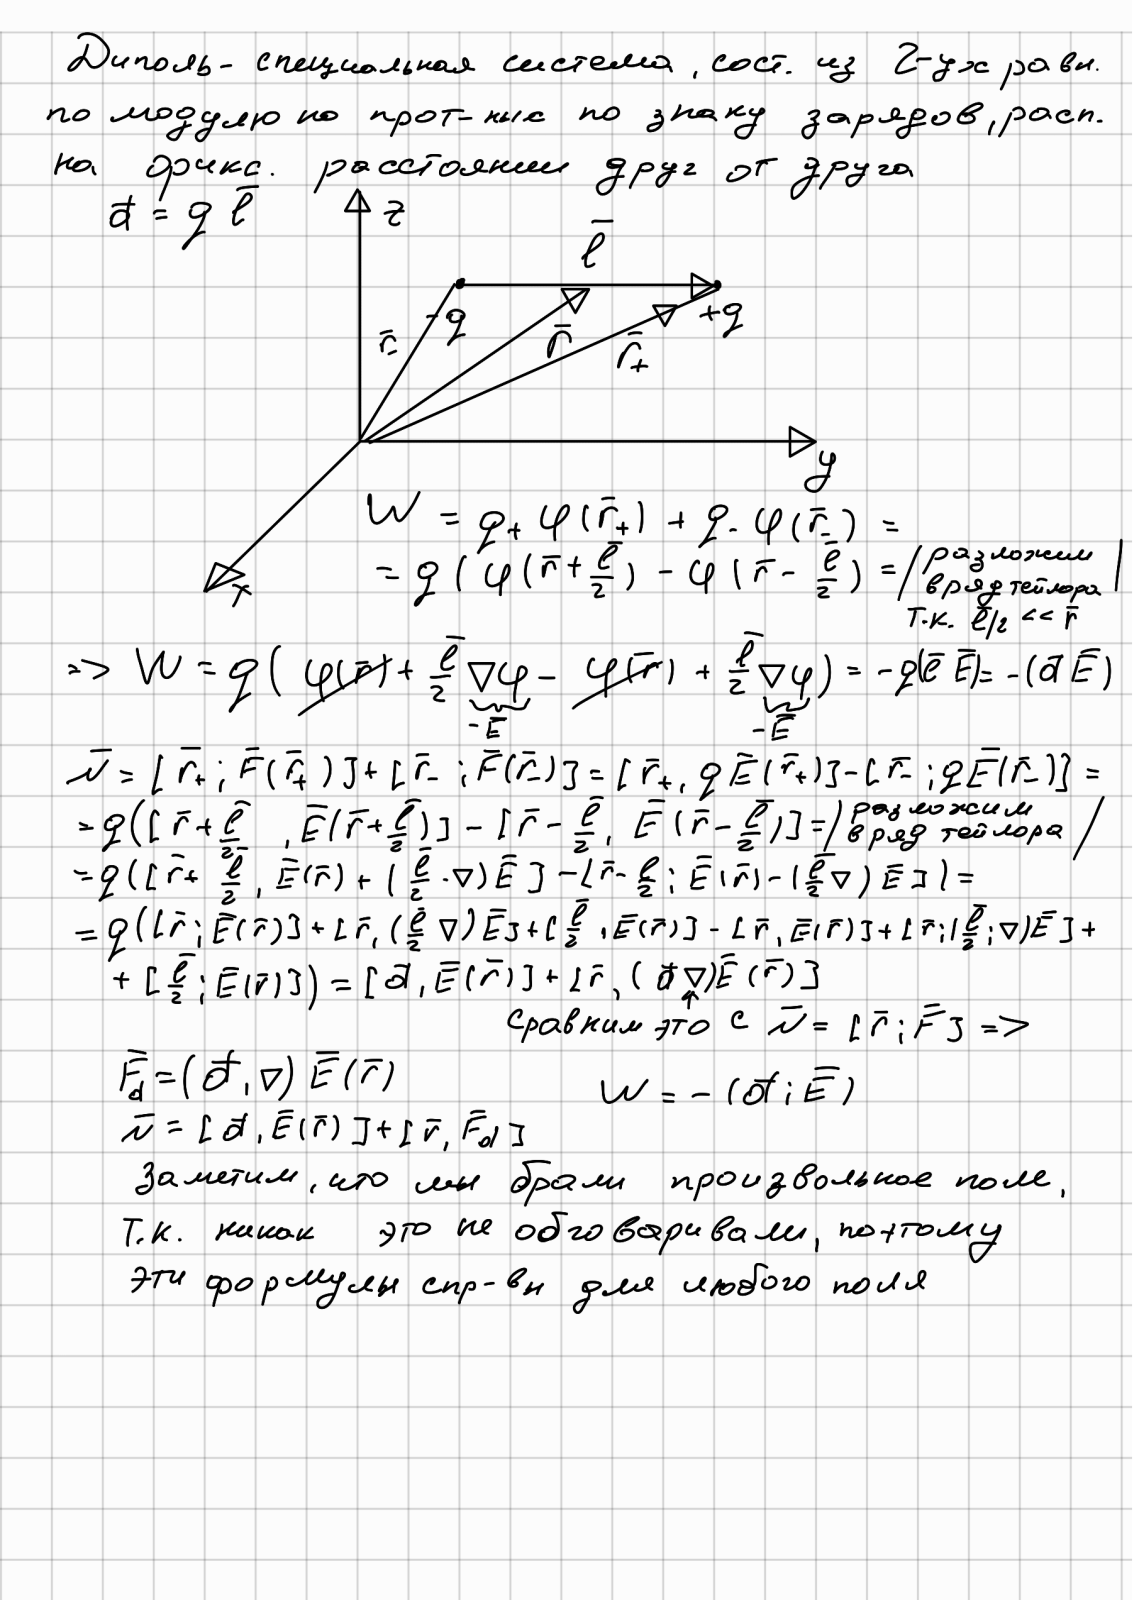 Диполь - специальная система, сост. из 2-ух равн.
по модулю но прот-ных по знаку зарядов, расп.
на фикс. расстоянии друг от друга
d̄ = q l̄
z
l̄
-q
+q
r̄₋
r̄
r̄₊
y
x
W = q₊ φ(r̄₊) + q₋ φ(r̄₋) =
= q ( φ(r̄ + l̄/2) - φ(r̄ - l̄/2) = / разложим
в ряд тейлора /
т.к. l̄/2 << r̄
=> W = q ( φ(r̄) + l̄/2 ∇φ - φ(r̄) + l̄/2 ∇φ ) = -q(l̄ Ē) = -(d̄ Ē)
-Ē -Ē
N̄ = [ r̄₊ ; F̄(r̄₊) ] + [ r̄₋ ; F̄(r̄₋) ] = [ r̄₊ , qĒ(r̄₊) ] - [ r̄₋ ; qĒ(r̄₋) ] =
= q ( [ r̄ + l̄/2 , Ē(r̄ + l̄/2) ] - [ r̄ - l̄/2 , Ē(r̄ - l̄/2) ] = / разложим
в ряд тейлора /
= q ( [ r̄ + l̄/2 , Ē(r̄) + ( l̄/2 · ∇) Ē ] - [ r̄ - l̄/2 ; Ē(r̄) - ( l̄/2 ∇) Ē ] ) =
= q ( [ r̄ ; Ē(r̄) ] + [ r̄ , ( l̄/2 ∇) Ē ] + [ l̄/2 , Ē(r̄) ] - [ r̄ , Ē(r̄) ] + [ r̄ ; ( l̄/2 ; ∇) Ē ] +
+ [ l̄/2 ; Ē(r̄) ] ) = [ d̄ , Ē(r̄) ] + [ r̄ , ( d̄ ∇) Ē(r̄) ]
↑
Сравним это с N̄ = [ r̄ ; F̄ ] =>
F̄d = ( d̄ , ∇) Ē(r̄)
W = - (d̄ ; Ē)
N̄ = [ d̄ , Ē(r̄) ] + [ r̄ , F̄d ]
Заметим, что мы брали произвольное поле,
т.к. никак это не обговаривали, поэтому
эти формулы спр-вы для любого поля